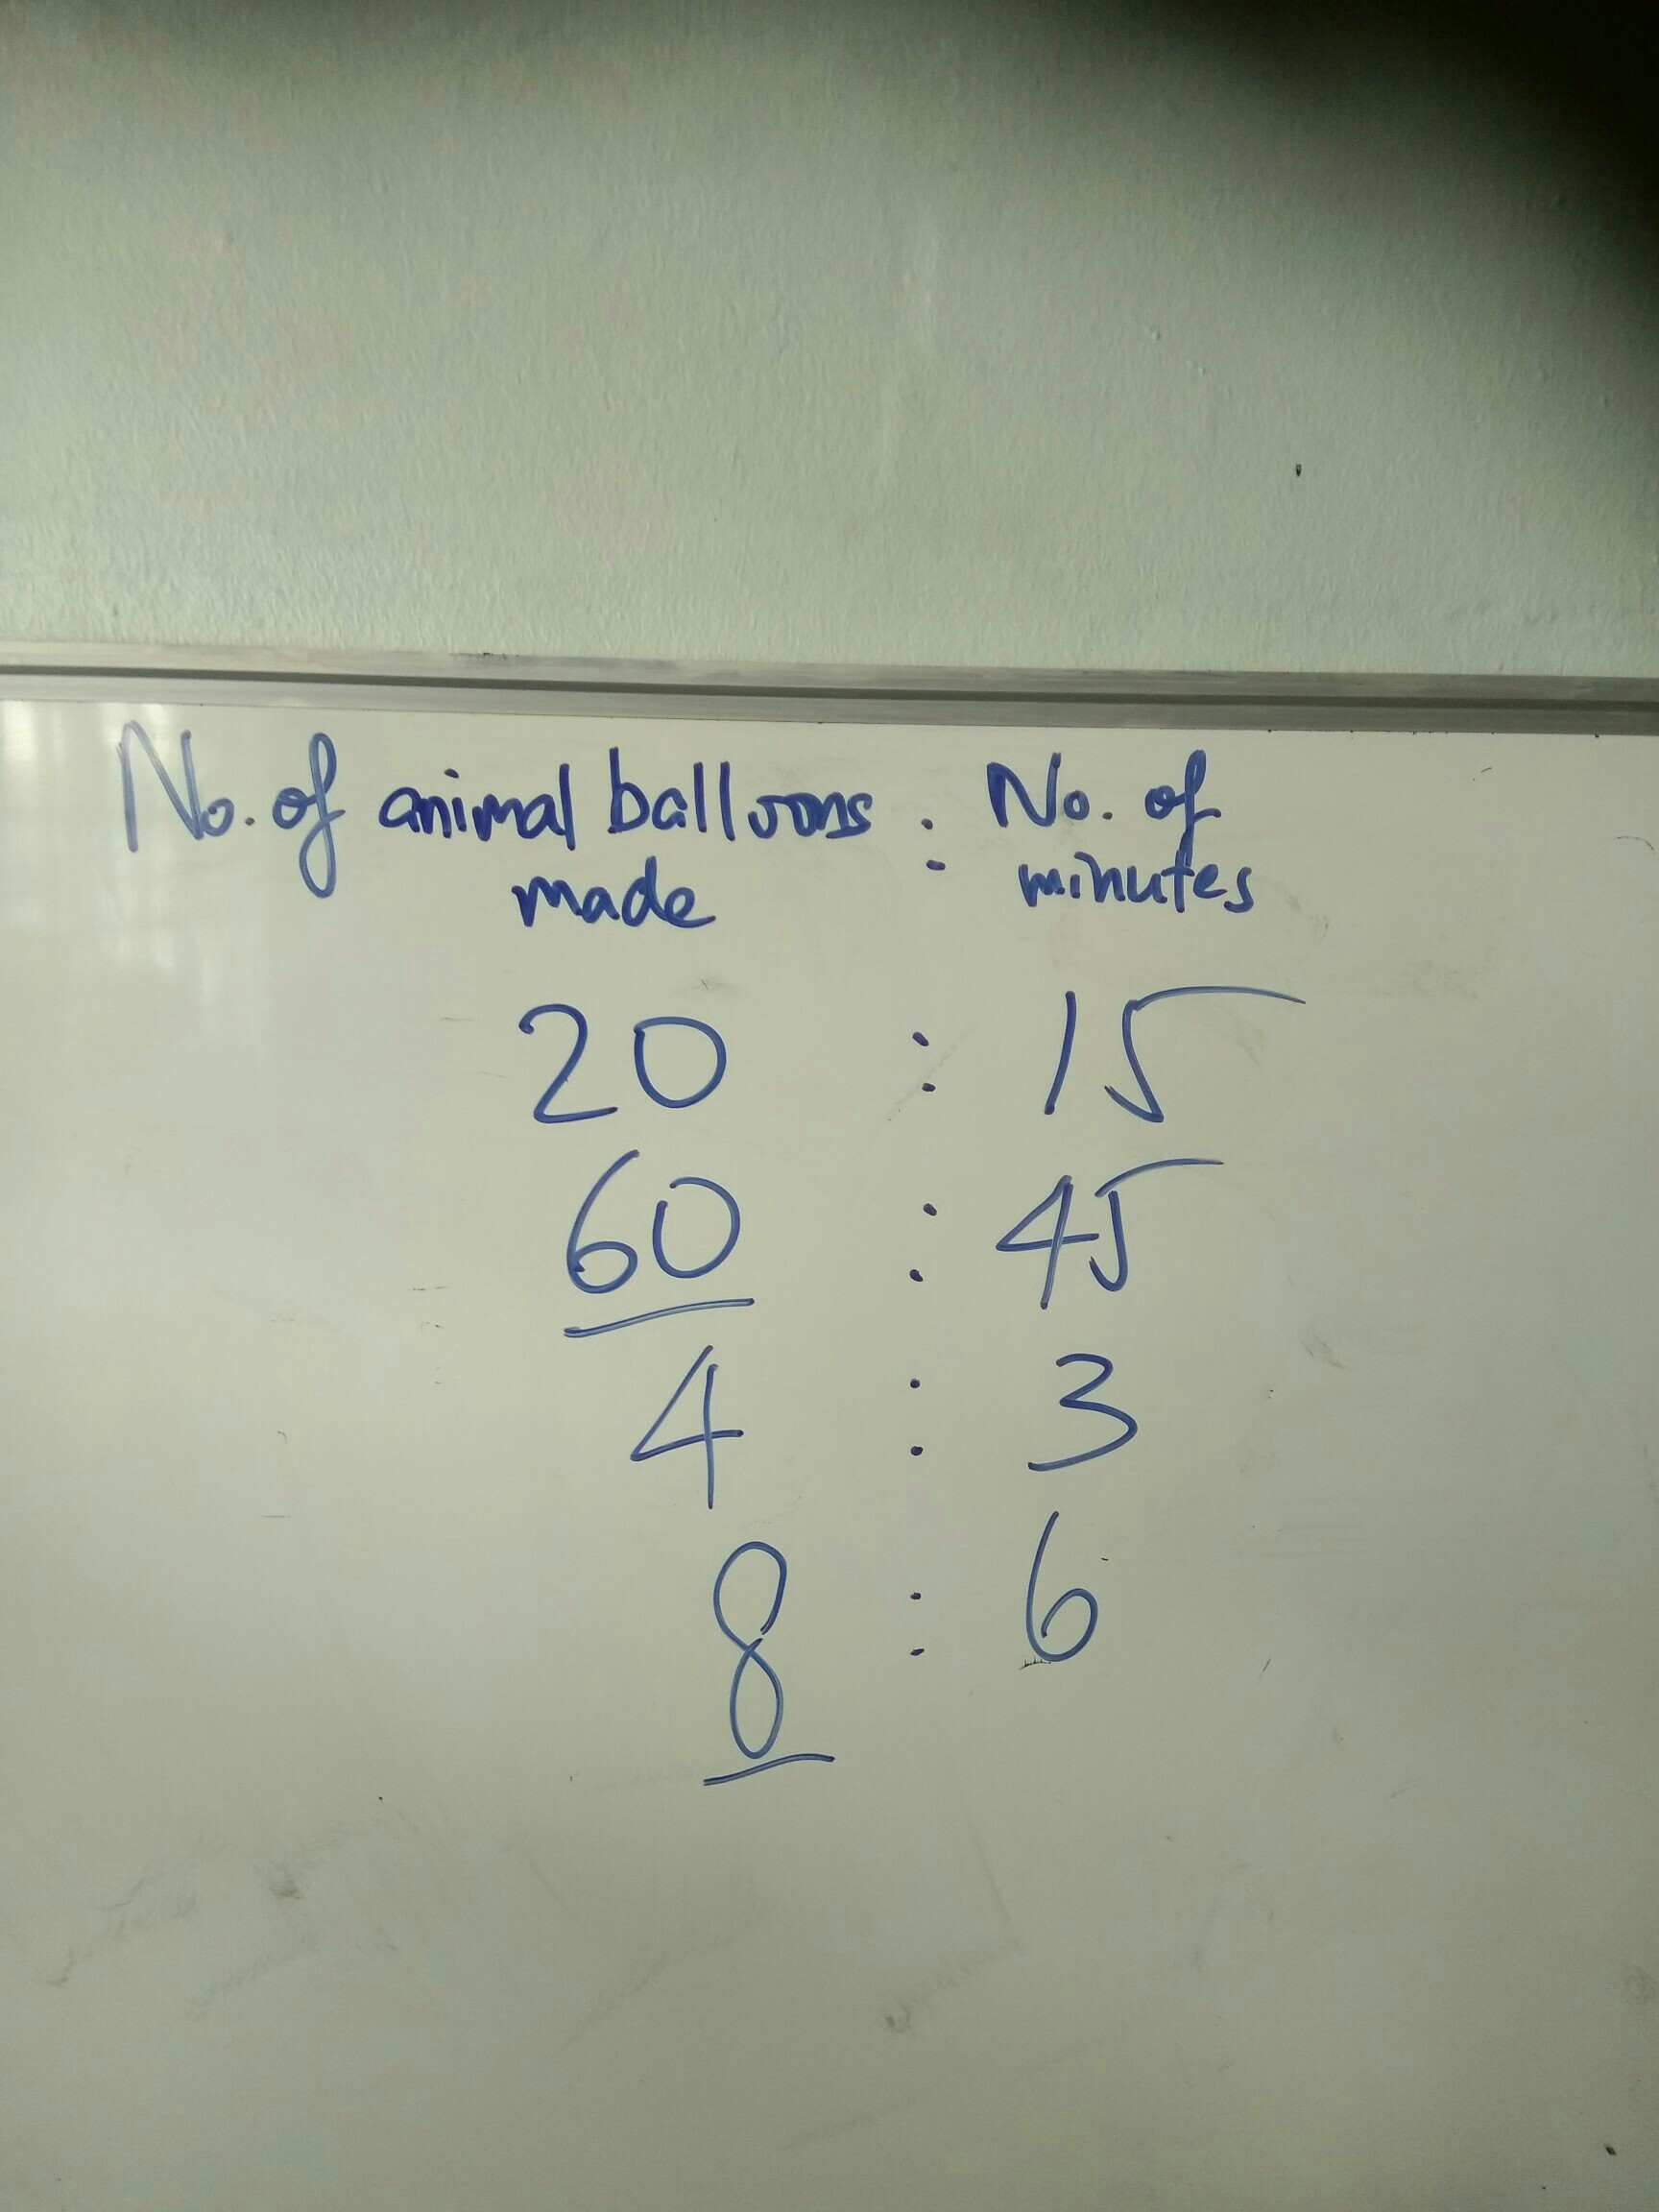 No. of animal balloons : No. of
made minutes
20 : 15
60 : 45
4 : 3
8 : 6